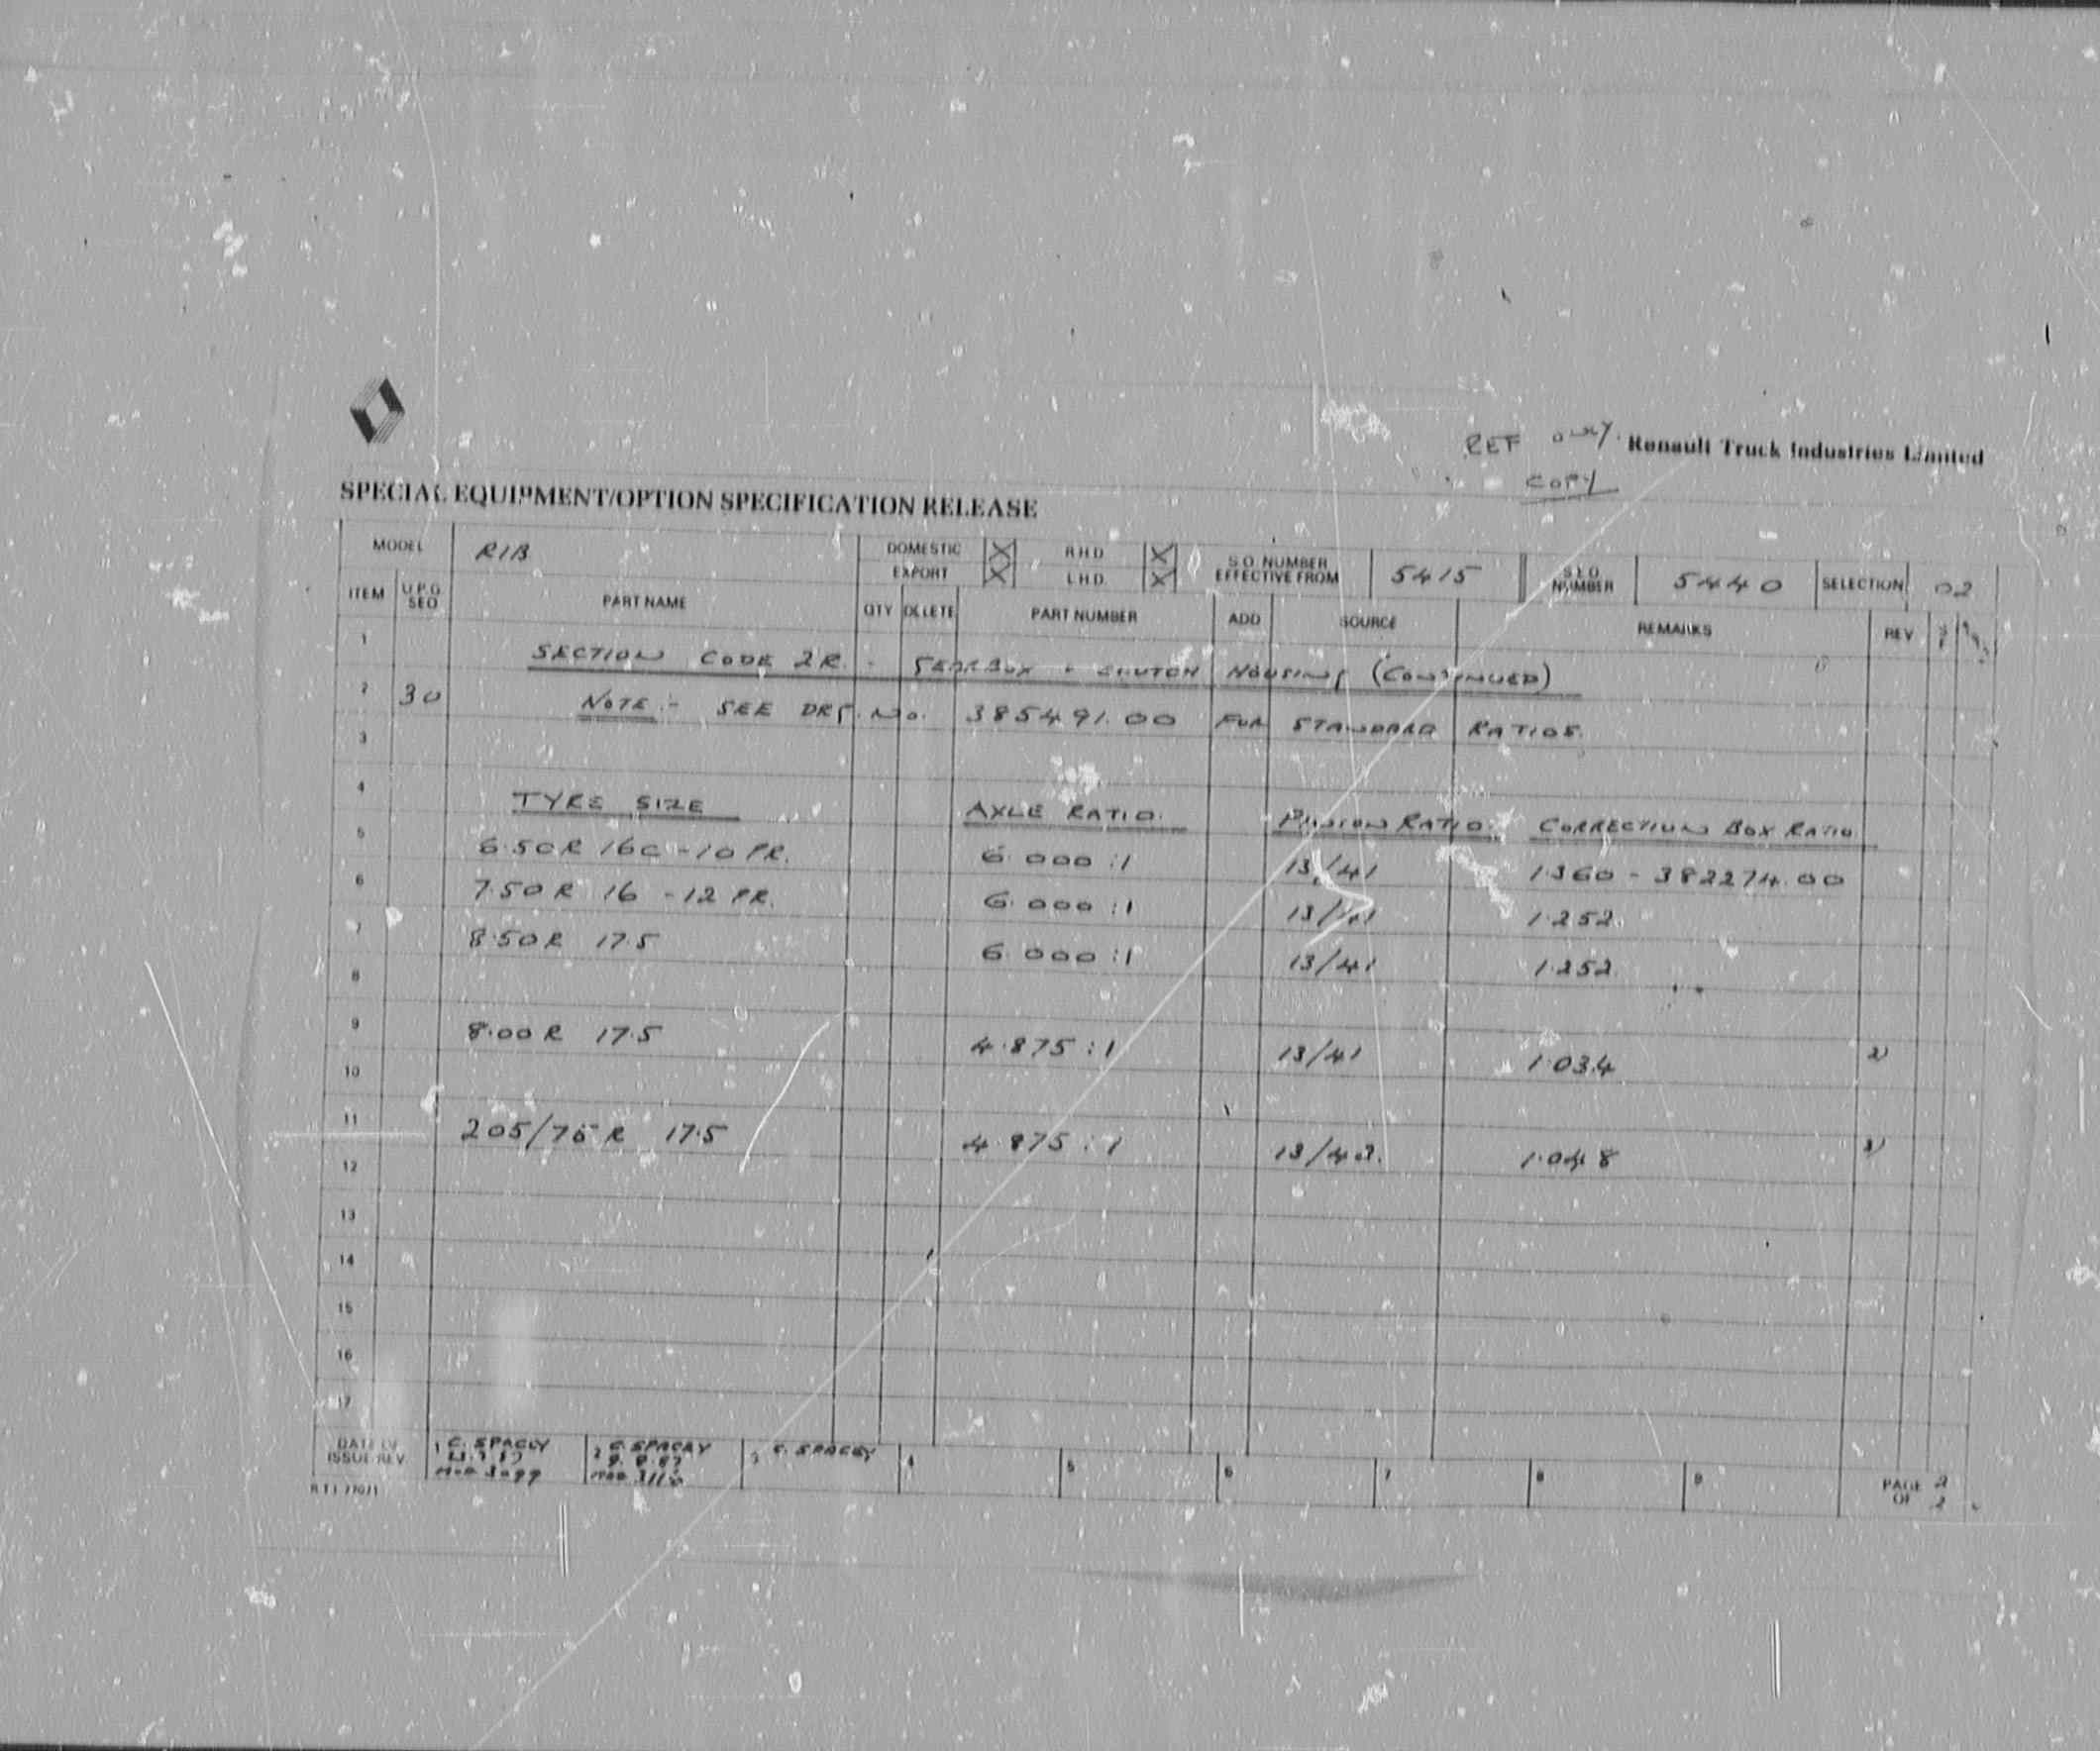 REF ONLY. Renault Truck Industries Limited
COPY
SPECIAL EQUIPMENT/OPTION SPECIFICATION RELEASE
MODEL R1B DOMESTIC X R.H.D. X S.O. NUMBER EFFECTIVE FROM 5415 S.E.O. NUMBER 5440 SELECTION 02
EXPORT X L.H.D. X
ITEM U.P.G SEQ PART NAME QTY DELETE PART NUMBER ADD SOURCE REMARKS REV
1 SECTION CODE 2R. - GEARBOX + CLUTCH HOUSING (CONTINUED)
2 30 NOTE:- SEE DRG. No. 385491.00 FOR STANDARD RATIOS.
3
4 TYRE SIZE AXLE RATIO. PINION RATIO. CORRECTION BOX RATIO
5 6.50R 16C -10 PR. 6.000:1 13/41 1.360 - 382274.00
6 7.50R 16 -12 PR. 6.000:1 13/41 1.252.
7 8.50R 17.5 6.000:1 13/41 1.252
8
9 8.00R 17.5 4.875:1 13/41 1.034 2)
10
11 205/75R 17.5 4.875:1 13/42. 1.048 3)
12
13
14
15
16
17
DATE OF ISSUE REV. 1 C. SPACEY 2 C. SPACEY 3 C. SPACEY 4 5 6 7 8 9 PAGE 2 OF 2